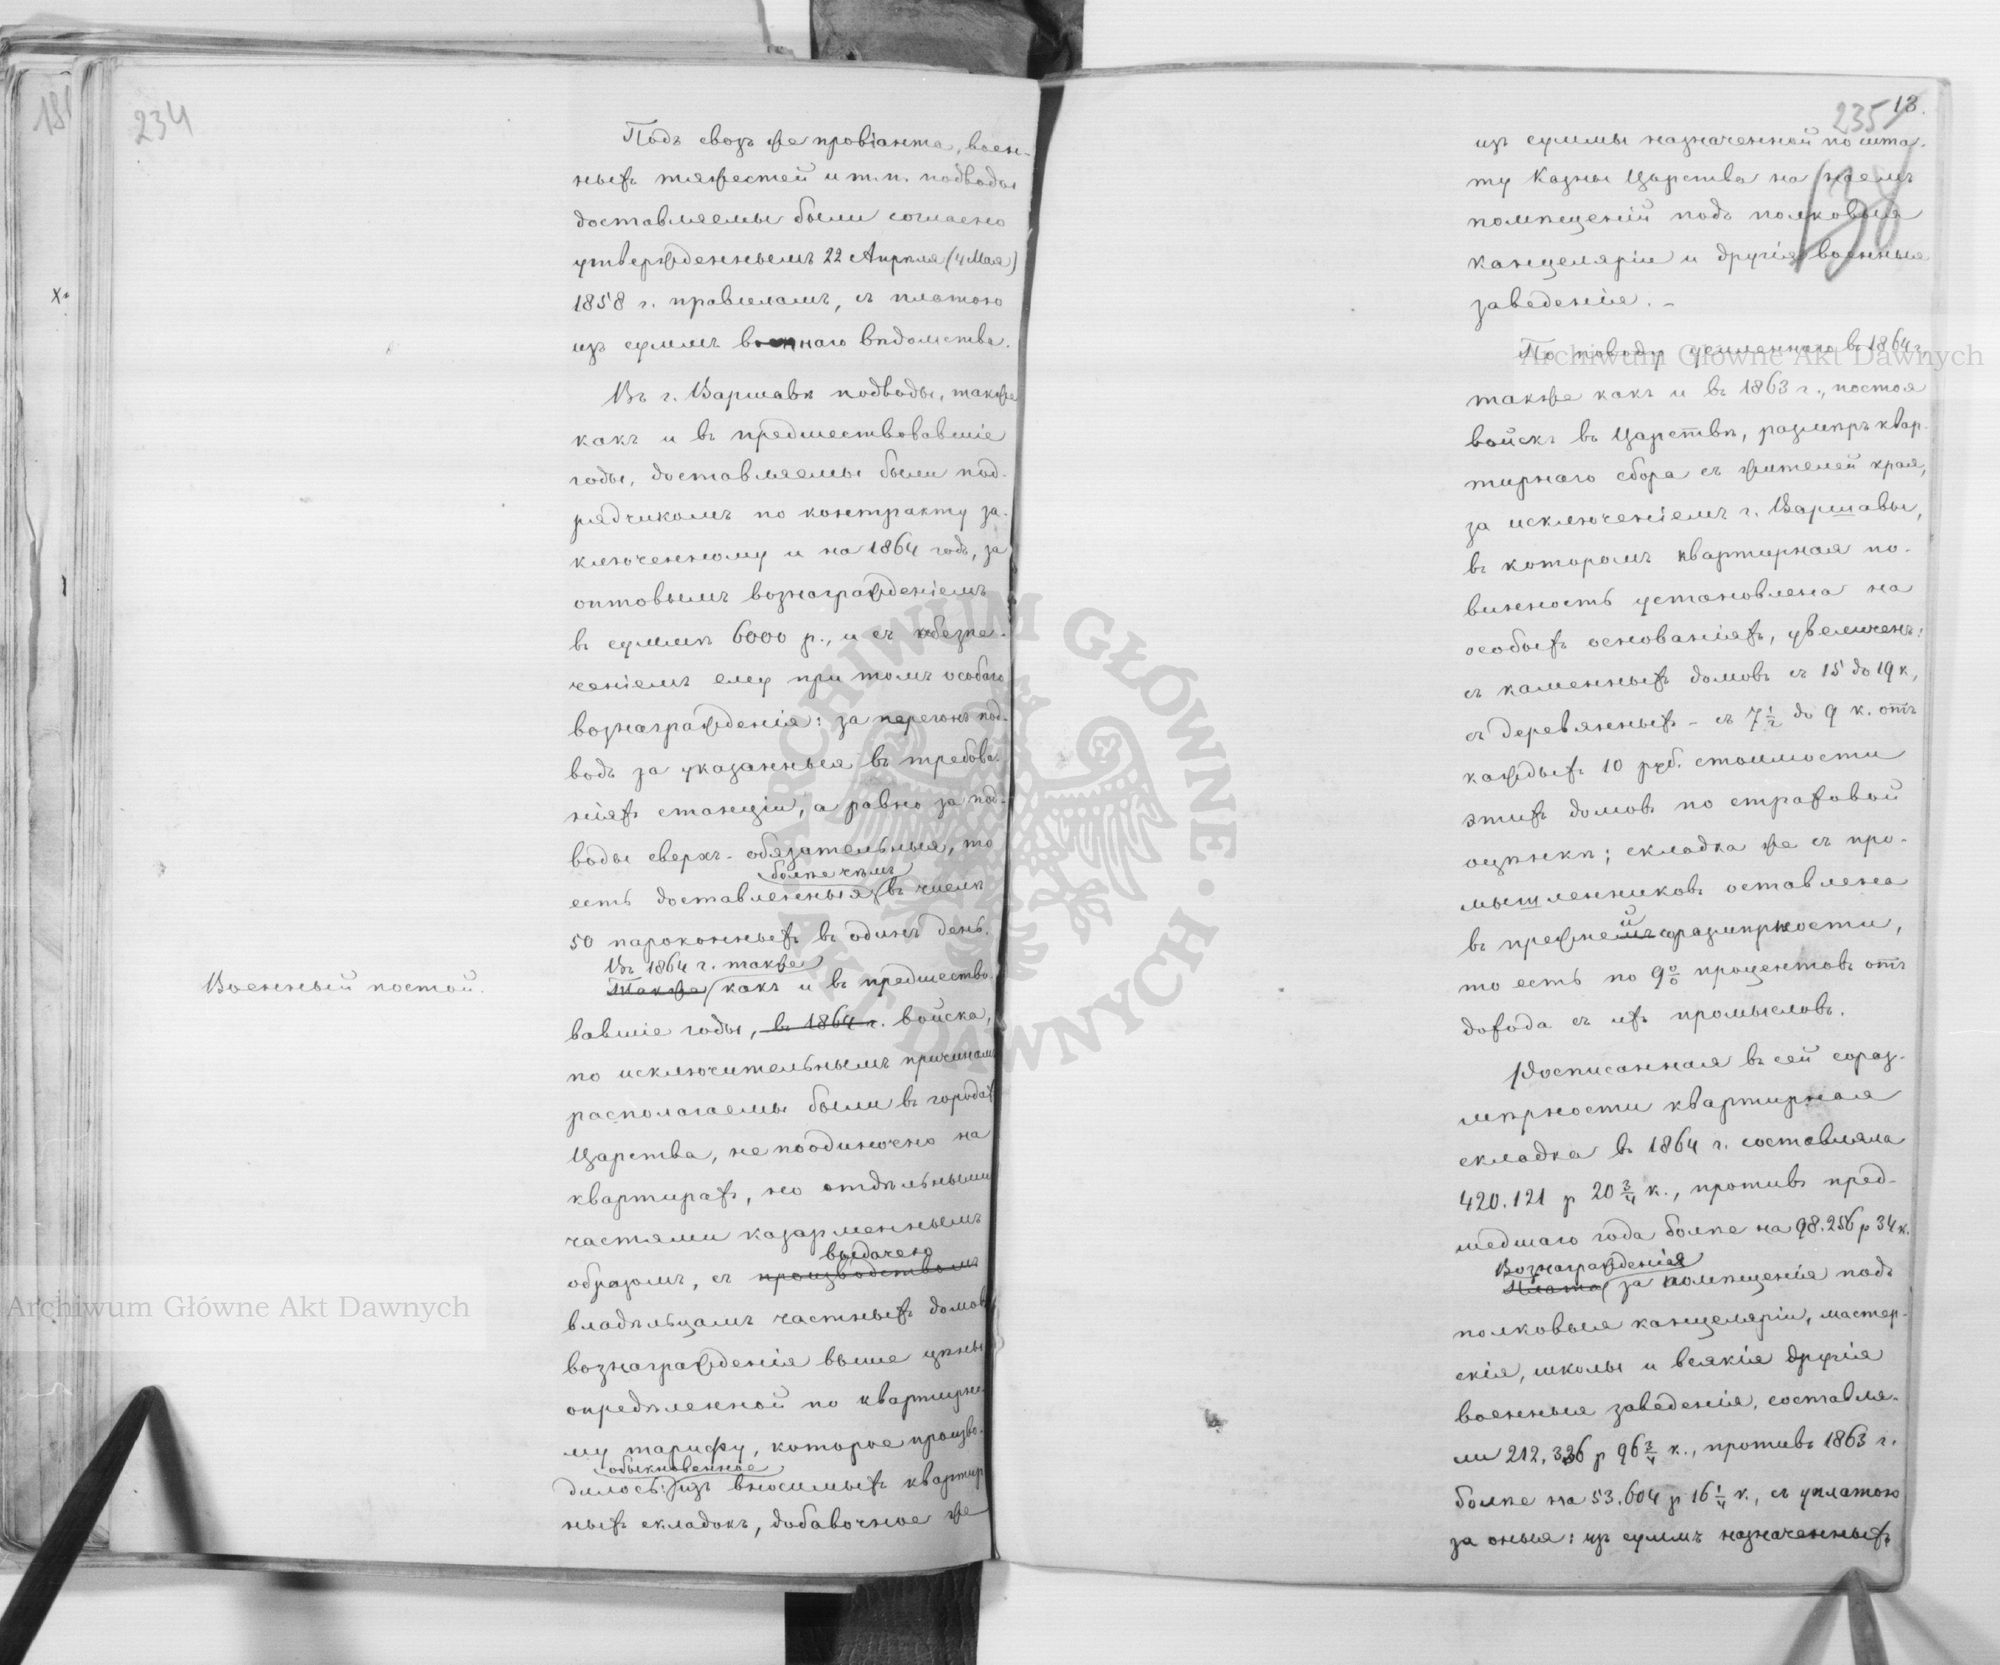 234
Подъ свозъ же провіанта, воен-
ныхъ тяжестей и т.п. подводы
доставляемы были согласно
утвержденнымъ 22 Апрѣля (4 Мая)
1858 г. правиламъ, съ платою
изъ суммъ военнаго вѣдомства.
Въ г. Варшавѣ подводы, также
какъ и въ предшествовавшіе
годы, доставляемы были под-
рядчикомъ по контракту за-
ключенному и на 1864 годъ, за
оптовымъ вознагражденіемъ
въ суммѣ 6000 р., и съ обезпе-
ченіемъ ему при томъ особаго
вознагражденія: за перегонъ под-
водъ за указанныя въ требова-
ніяхъ станціи, а равно за под-
воды сверхъ-обязательныя, то
болѣе чѣмъ
есть доставленныя въ числѣ
50 пароконныхъ въ одинъ день.
Въ 1864 г. также
Военный постой.
Также какъ и въ предшество-
вавшіе годы, въ 1864 г. войска,
по исключительнымъ причинамъ
располагаемы были въ городахъ
Царства, не поодиночно на
квартирахъ, но отдѣльными
частями казарменнымъ
выдачею
образомъ, съ производствомъ
владѣльцамъ частныхъ домовъ
вознагражденія выше цѣны
опредѣленной по квартирно-
му тарифу, которое произво-
обыкновенное
дилось: изъ вносимыхъ квартир
ныхъ складокъ, добавочное же
235
13.
изъ суммы назначенной по шта-
ту Казны Царства на наемъ
помѣщеній подъ полковыя
канцеляріи и другія военныя
заведенія. –
По поводу усиленнаго въ 1864 г.,
также какъ и въ 1863 г., постоя
войскъ въ Царствѣ, размѣръ квар-
тирнаго сбора съ жителей края,
за исключеніемъ г. Варшавы,
въ которомъ квартирная по-
винность установлена на
особыхъ основаніяхъ, увеличенъ:
съ каменныхъ домовъ съ 15 до 19 к.,
съ деревянныхъ – съ 7 1/2 до 9 к. отъ
каждыхъ 10 руб. стоимости
этихъ домовъ по страховой
оцѣнкѣ; складка же съ про-
мышленниковъ оставлена
й
въ прежнемъ соразмѣрности,
то есть по 9% процентовъ отъ
дохода съ ихъ промысловъ.
Росписанная въ сей сораз-
мѣрности квартирная
складка въ 1864 г. составляла
420.121 р 20 3/4 к., противъ пред-
шедшаго года болѣе на 98.256 р 34 к.
Вознагражденія
Плата за помѣщенія подъ
полковыя канцеляріи, мастер-
скія, школы и всякія другія
военныя заведенія, составля-
ли 212,336 р 96 3/4 к., противъ 1863 г.
болѣе на 53.604 р 16 1/4 к., съ уплатою
за оныя: изъ суммъ назначенныхъ
Archiwum Główne Akt Dawnych
Archiwum Główne Akt Dawnych
ARCHIWUM GŁÓWNE · AKT DAWNYCH ·